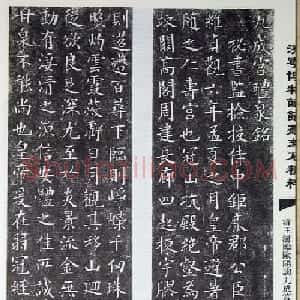 九成宮醴泉銘
秘書監檢校侍中鉅鹿郡公臣
維貞觀六年孟夏之月皇帝避暑
隨之仁壽宮也冠山抗殿絕壑為
竦闕高閣周建長廊四起棟宇膠
則迢遰百尋下臨則崢嶸千仞珠
照灼雲霞蔽虧日月觀其移山迴
從欲良足深尤至於炎景流金無
動有淒清之涼信安體之佳所誠
甘泉不能尚也皇帝爰在弱冠經